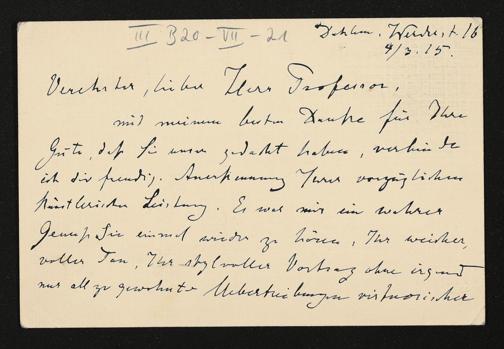 III B20-VII-21
Dahlem, Werderstr. 16
9/3.15.
Verehrter, lieber Herr Professor,
mit meinem besten Danke für Ihre
Güte, daß Sie unser gedacht haben, verbinde
ich die freudig. Anerkennung Ihrer vorzüglichen
künstlerischen Leistung. Es war mir ein wahrer
Genuß Sie einmal wieder zu hören, Ihr weicher,
voller Ton, Ihr stylvoller Vortrag ohne irgend
nur allzu gewohnte Uebertreibungen virtuosischer